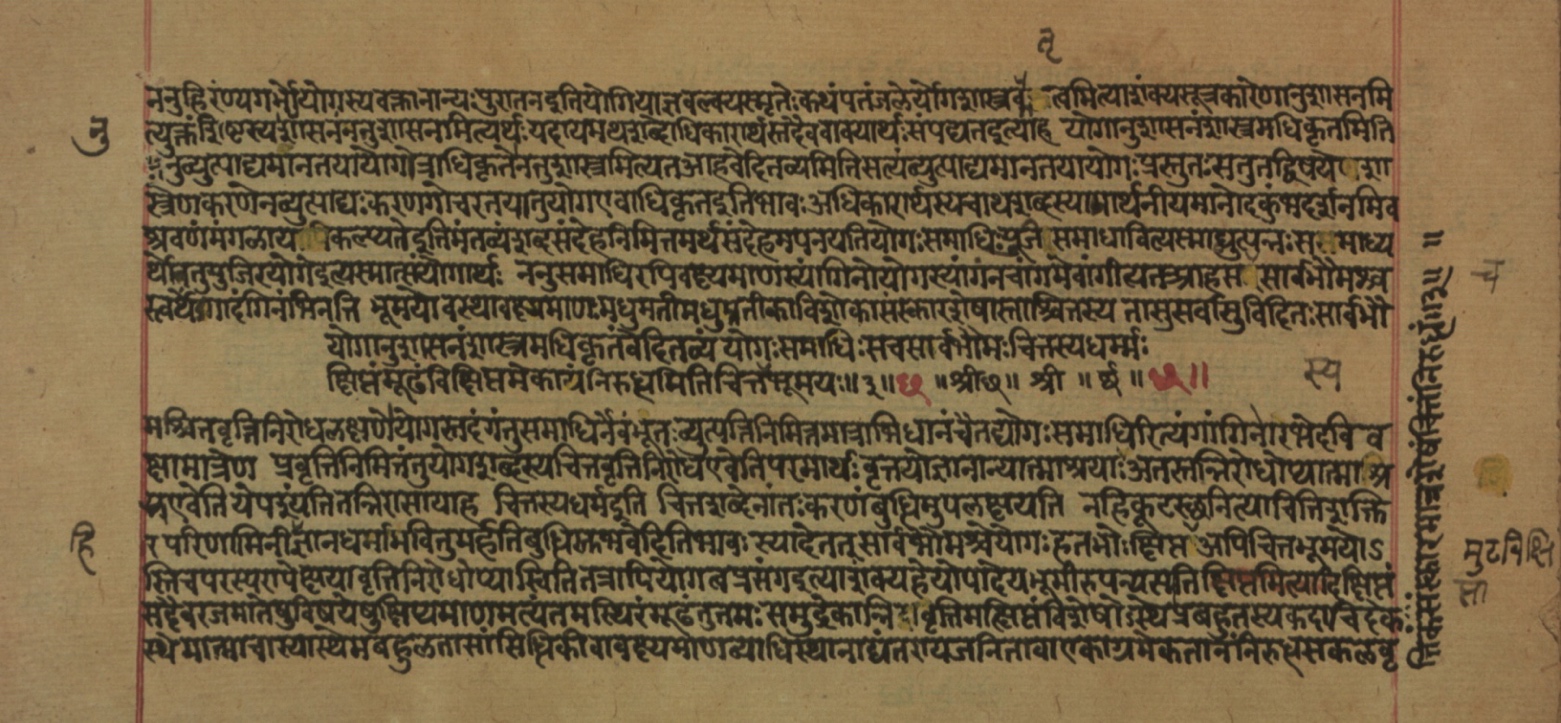 तृ
ननुहिरंण्यगर्भोयोगस्यवक्तानान्यःपुरातनइतियोगियाज्ञवल्क्यस्मृतेःकथंपतंजलेर्योगशास्त्रव त्वमित्याशंक्यसूत्रकारेणानुशासनमि
नु
त्युक्तंशिष्टस्यशासनमनुशासनमित्यर्थःयदायमथशब्दोधिकारार्थस्तदैववाक्यार्थःसंपद्यतइत्याह योगानुशासनंशास्त्रमधिकृतमिति
ननुव्युत्पाद्यमानतयायोगोत्राधिकृतोनतुशास्त्रमित्यतआहवेदितव्यमितिसत्यंव्युत्पाद्यमानतयायोगःप्रस्तुतःसतुतद्विषयेणशा
स्त्रेणकरणेनव्युत्पाद्यःकरणगोचरतयातुयोगएवाधिकृतइतिभावःअधिकारार्थस्यचाथशब्दस्यान्यार्थनीयमानोदकुंभदर्शनमिव
श्रवणंमंगळाय कल्प्यतेइतिमंतव्यंशब्दसंदेहनिमित्तमर्थसंदेहमपनयतियोगःसमाधिःयुज समाधावित्यस्माद्व्युत्पन्नःस समाध्य
र्थोनतुयुजिरयोगेइत्यस्मात्संयोगार्थः ननुसमाधिरपिवक्ष्यमाणस्यांगिनोयोगस्यांगंनचांगमेवांगीत्यतआहस सार्वभौमश्च
स्त्वर्थेअंगादंगिनंभिनत्ति भूमयोवस्थावक्ष्यमाणामधुमतीमधुप्रतीकाविशोकासंस्कारशेषास्ताश्चित्तस्य तासुसर्वासुविदितःसार्वभौ
योगानुशासनंशास्त्रमधिकृतंवेदितव्यं योगःसमाधिःसचसार्वभौमःचित्तस्यधर्म्मः
क्षिप्तंमूढंविक्षिप्तमेकाग्रंनिरुद्धमितिचित्तभूमयः॥३॥छ॥श्रीछ॥ श्री ॥ ॥ छ॥
स्य
मश्चित्तवृत्तिनिरोधलक्षणोयोगस्तदंगंतुसमाधिर्नैवंभूतःव्युत्पत्तिनिमित्तमात्राभिधानंचैतद्योगःसमाधिरित्यंगांगिनोरभेदवि व
क्षामात्रेण प्रवृत्तिनिमित्तंतुयोगशब्दस्यचित्तवृत्तिनिरोधएवेतिपरमार्थःवृत्तयोज्ञानान्यात्माश्रयाःअतस्तन्निरोधोप्यात्माश्र
यएवेतियेपश्यंतितन्निरासायाह चित्तस्यधर्मइति चित्तशब्देनांतःकरणंबुधिमुपलक्षयति नहिकूटस्छनित्याचितिशक्ति
हि
रपरिणामिनीज्ञानधर्माभवितुमर्हतिबुधिस्तुभवेदितिभावः स्यादेतत् सार्वभौमश्चेयोगःहंतभोःक्षिप्त आपिचित्तभूमयोऽ
स्तिचपरस्परापेक्षयावृत्तिनिरोधोप्यास्वितितत्रापियोगत्वप्रसंगइत्याशंक्यहेयोपादेयभूमीरुपन्यस्यति क्षिप्तमित्यादिक्षिप्तं
सदैवरजमातेषुविषयेषुक्षिप्यमाणमत्यंतमस्थिरंमूढंतुतमःसमुद्रेकान्निद्रावृत्तिमत्क्षिप्तंविशेषोऽस्थेप्रबहुतस्यकदाचिदकः
स्थेमात्माचास्यास्थेमबहुलतासांसिधिकीवावक्ष्यमाणव्याधिस्थानाद्यंतरायजनितावाएकाग्रमेकतानंनिरुद्धसकळवृ
त्तिकसंस्कारमात्रशेषंचित्तंनिरुद्धं॥३॥ ॥
च
मुटविक्षि
प्ता